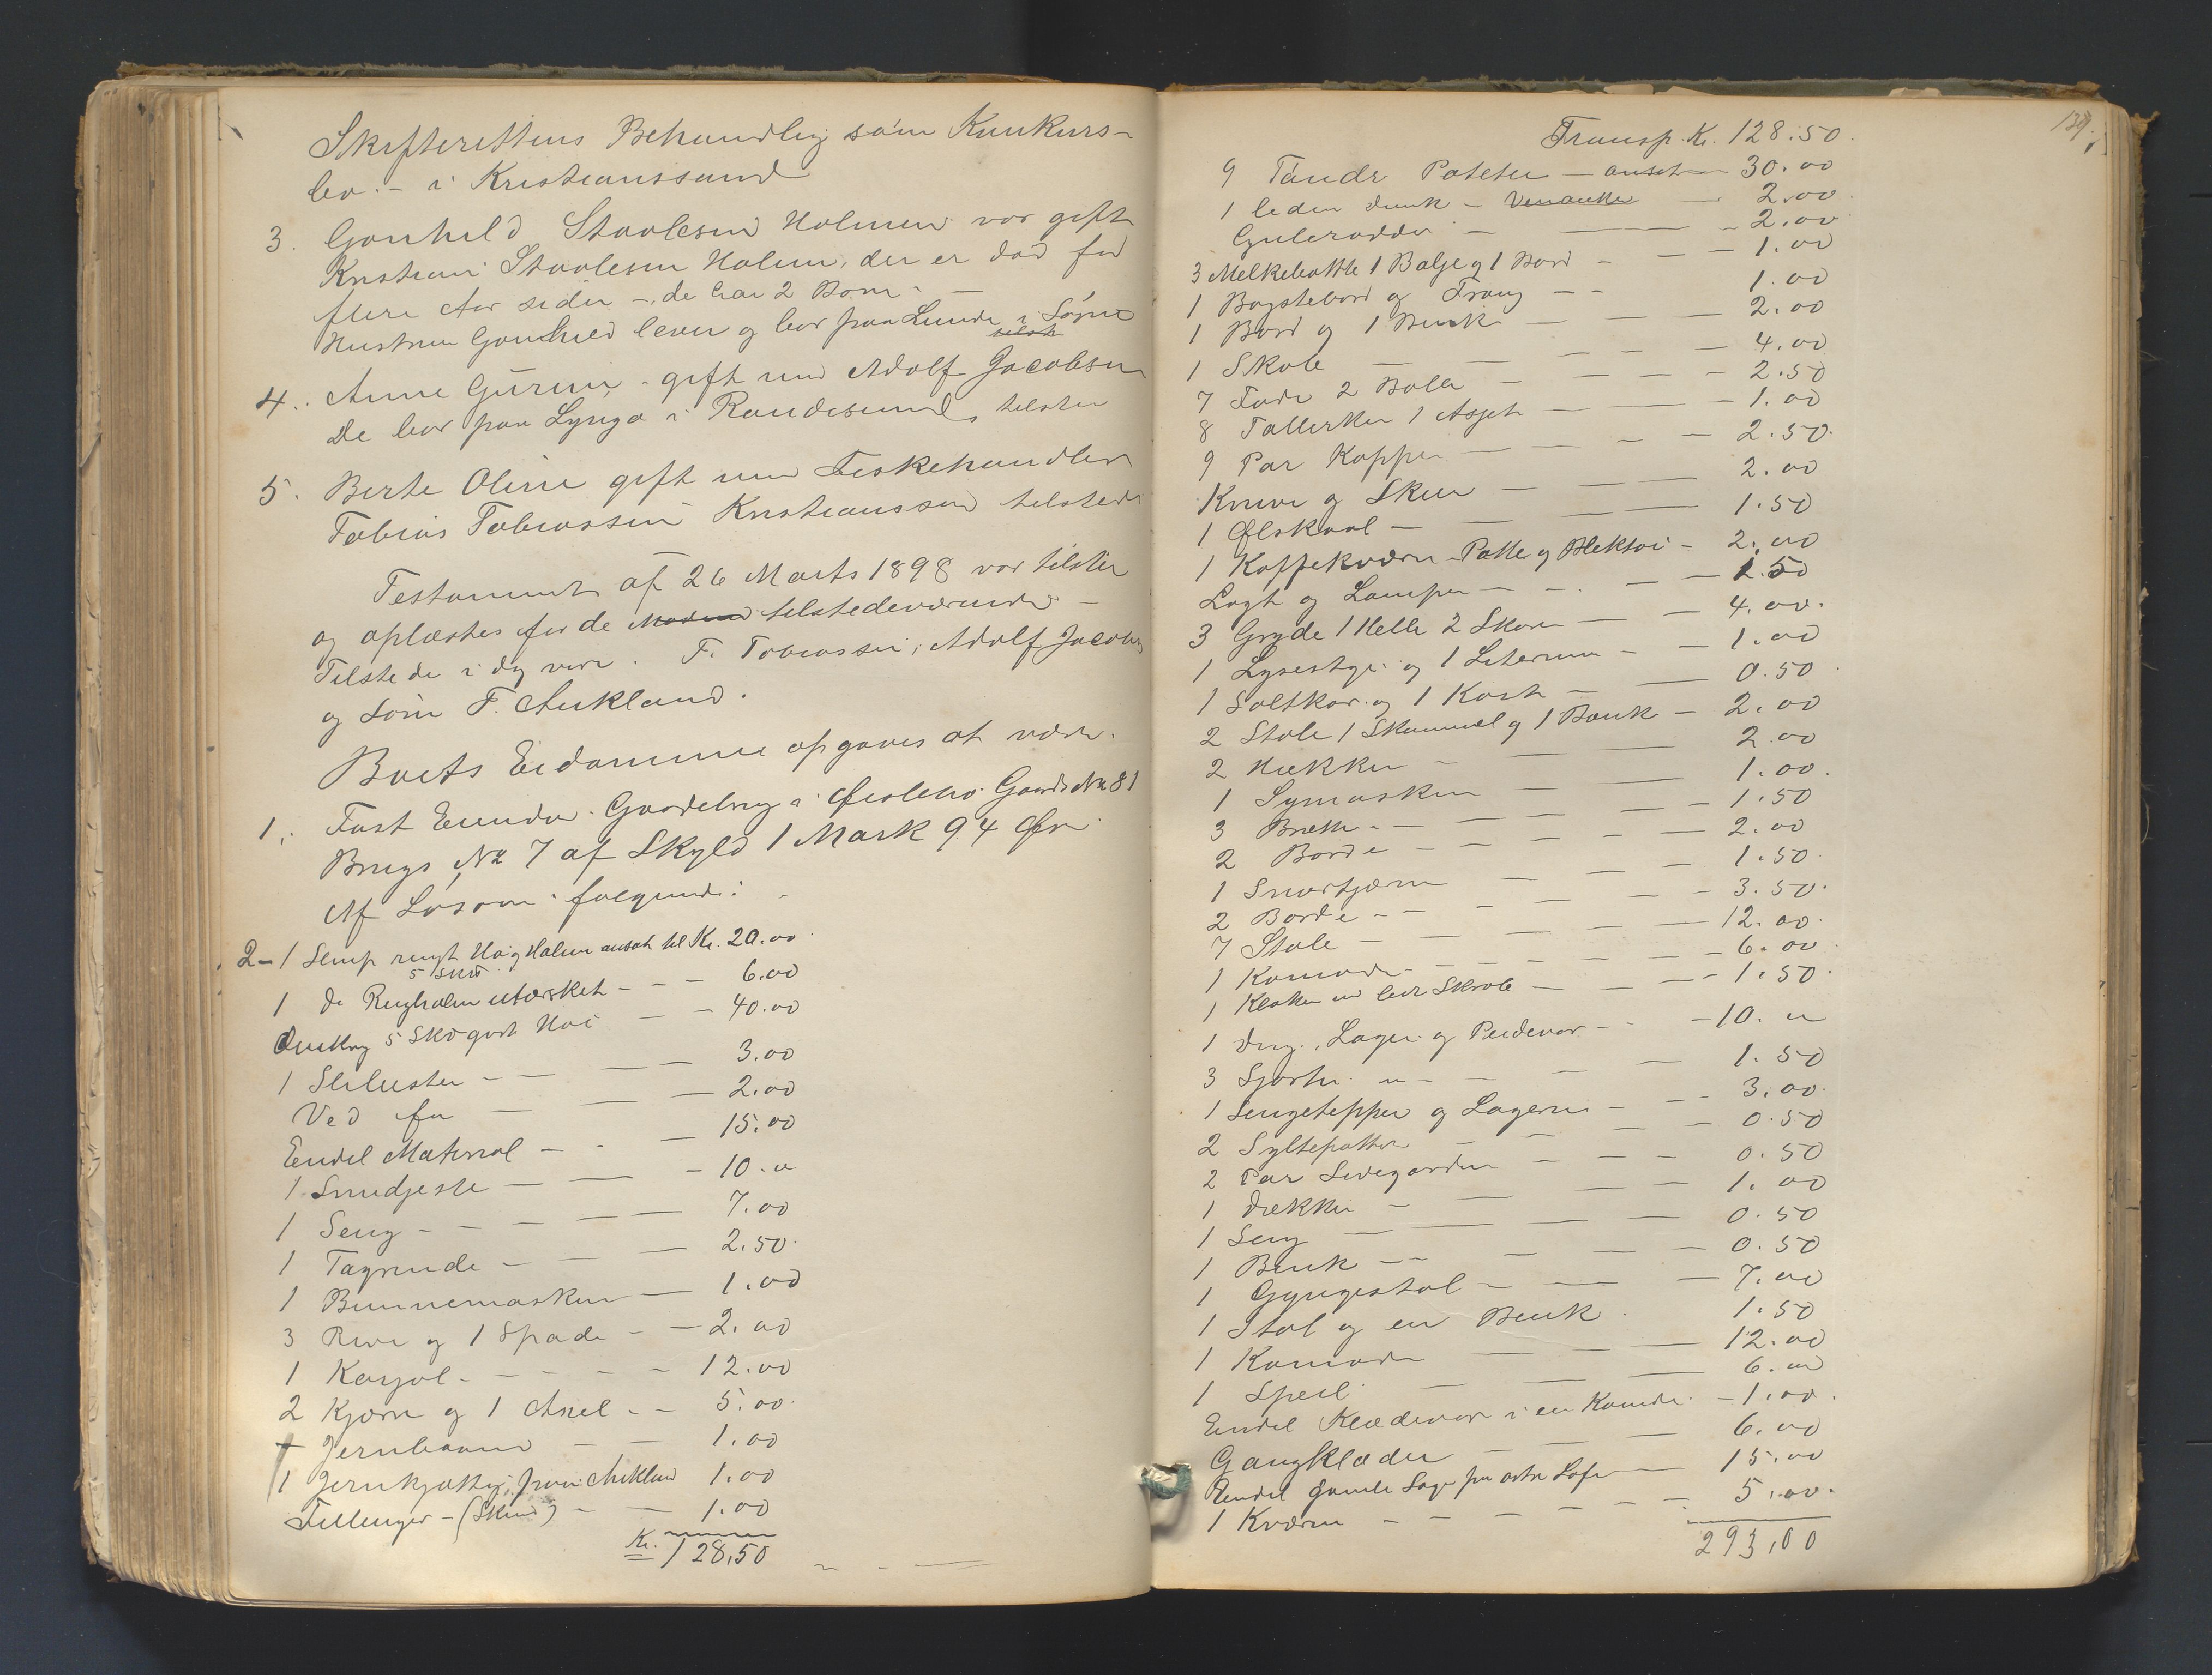 Skifterettens Behandling som Konkurs-
bo. - i Kristianssand
3. Gonhild Staalesen Holmen var gift
Kristian Staalesen Holmen, der er død for
flere Aar siden -, de har 2 Børn. -
Hustruen Gonhild lever og bor paa Lunde i Søgne
tilst
4. Anne Gurine, gift med Adolf Jacobsen
De bor paa Lyngø i Randesund, tilsted
5. Berte Oline gift med Fiskehandler
Tobias Tobiassen Kristianssand tilstede
Testament af 26 Marts 1898 var tilsted
og oplæstes for de tilstedeværende -
Tilstede i dag vare. T. Tobiassen, Adolf Jacobsen
og Søn T. Aukland.
Boets Eiendomme opgaves at være.
1. Fast Eiendom. Gaardebrug i Gaards No 81
Brugs No 7 af Skyld 1 Mark 94 Øre
Af Løsøre følgende:
2 - 1 Hø og Halm ansat til Kr. 20.00
5 Skd
1 do Rughalm utærsket - - - 6.00
Omkring 5 Skd godt Høi - - 40.00
1 - - - - 3.00
Ved for - - - 2.00
Endel Material - - - 15.00
1 - - - 10. "
1 Seng - - - - - 7.00
1 Tagrende - - - 2.50
1 - 1.00
3 River og 1 Spade - - 2.00
1 Karjol - - - - - 12.00
2 Kjærre og 1 Axel - - 5.00
- - 1.00
1 fra Aukland 1.00
Fellinger - (Skind) - - 1.00
Kr. 128,50
139.
Transp. Kr. 128.50
9 Tønder Poteter - ansat - 30.00
1 liden Dunk - - 2.00
Gulerødder - - - 2.00
3 Melkebøtte 1 Balje og 1 Bord - - 1.00
1 Bagstebord og Traug - - 1.00
1 Bord og 1 Benk - - - 2.00
1 Skab - - - - - 4.00
7 Fade 2 Boller - - - - 2.50
8 Tallerken 1 Asjet - - - 1.00
9 Par Kopper - - - - 2.50
Knive og Skeer - - - 2.00
1 Ølskaal - - - - 1.50
1 Kaffekværn Potte og Bliktøi - 2.00
Lygt og Lamper - - - - 1.50
3 Gryde 1 Helle 2 - - 4.00
1 Lysestage og 1 - - 1.00
1 Saltkar og 1 Kost - - 0.50
2 Stole 1 Skammel og 1 Bænk - 2.00
2 Hækker - - 2.00
1 Symaskin - - 1.00
3 - - - - - 1.50
2 Borde - - - - - 2.00
1 - - - - 1.50
2 Borde - - - - - 3.50
7 Stole - - - 12.00
1 Komode - - - - - - 6.00
1 Klokke - - - 1.50
1 Lagen og Pudevar - - - 10. "
3 Skjorter " - - - 1.50
1 Sengetepper og Lagen - - - 3.00
2 Syltepotter - - - - 0.50
2 Par - - - - 0.50
1 Dækken - - - - 1.00
1 Seng - - - - 0.50
1 Benk - - - - - 0.50
1 Gyngestol - - - 7.00
1 Stol og en Benk 1.50
1 Komode - - - 12.00
1 Speil - - - 6.00
Endel Klædevar i en Komode - 1.00
Gangklæder - - - 6.00
Endel gamle Sager paa østre Loft - 15.00
1 Kværn - - - - - - 5.00
293,00